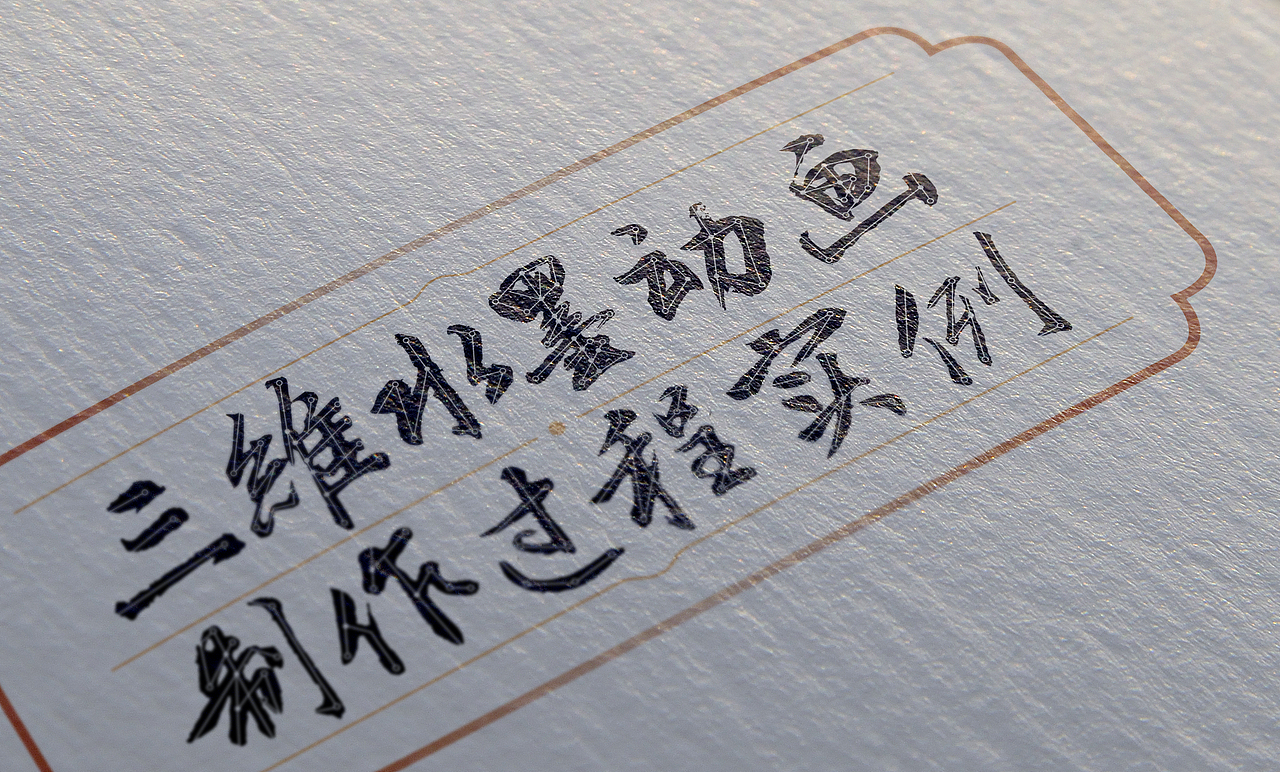 三维水墨动画
制作过程实例